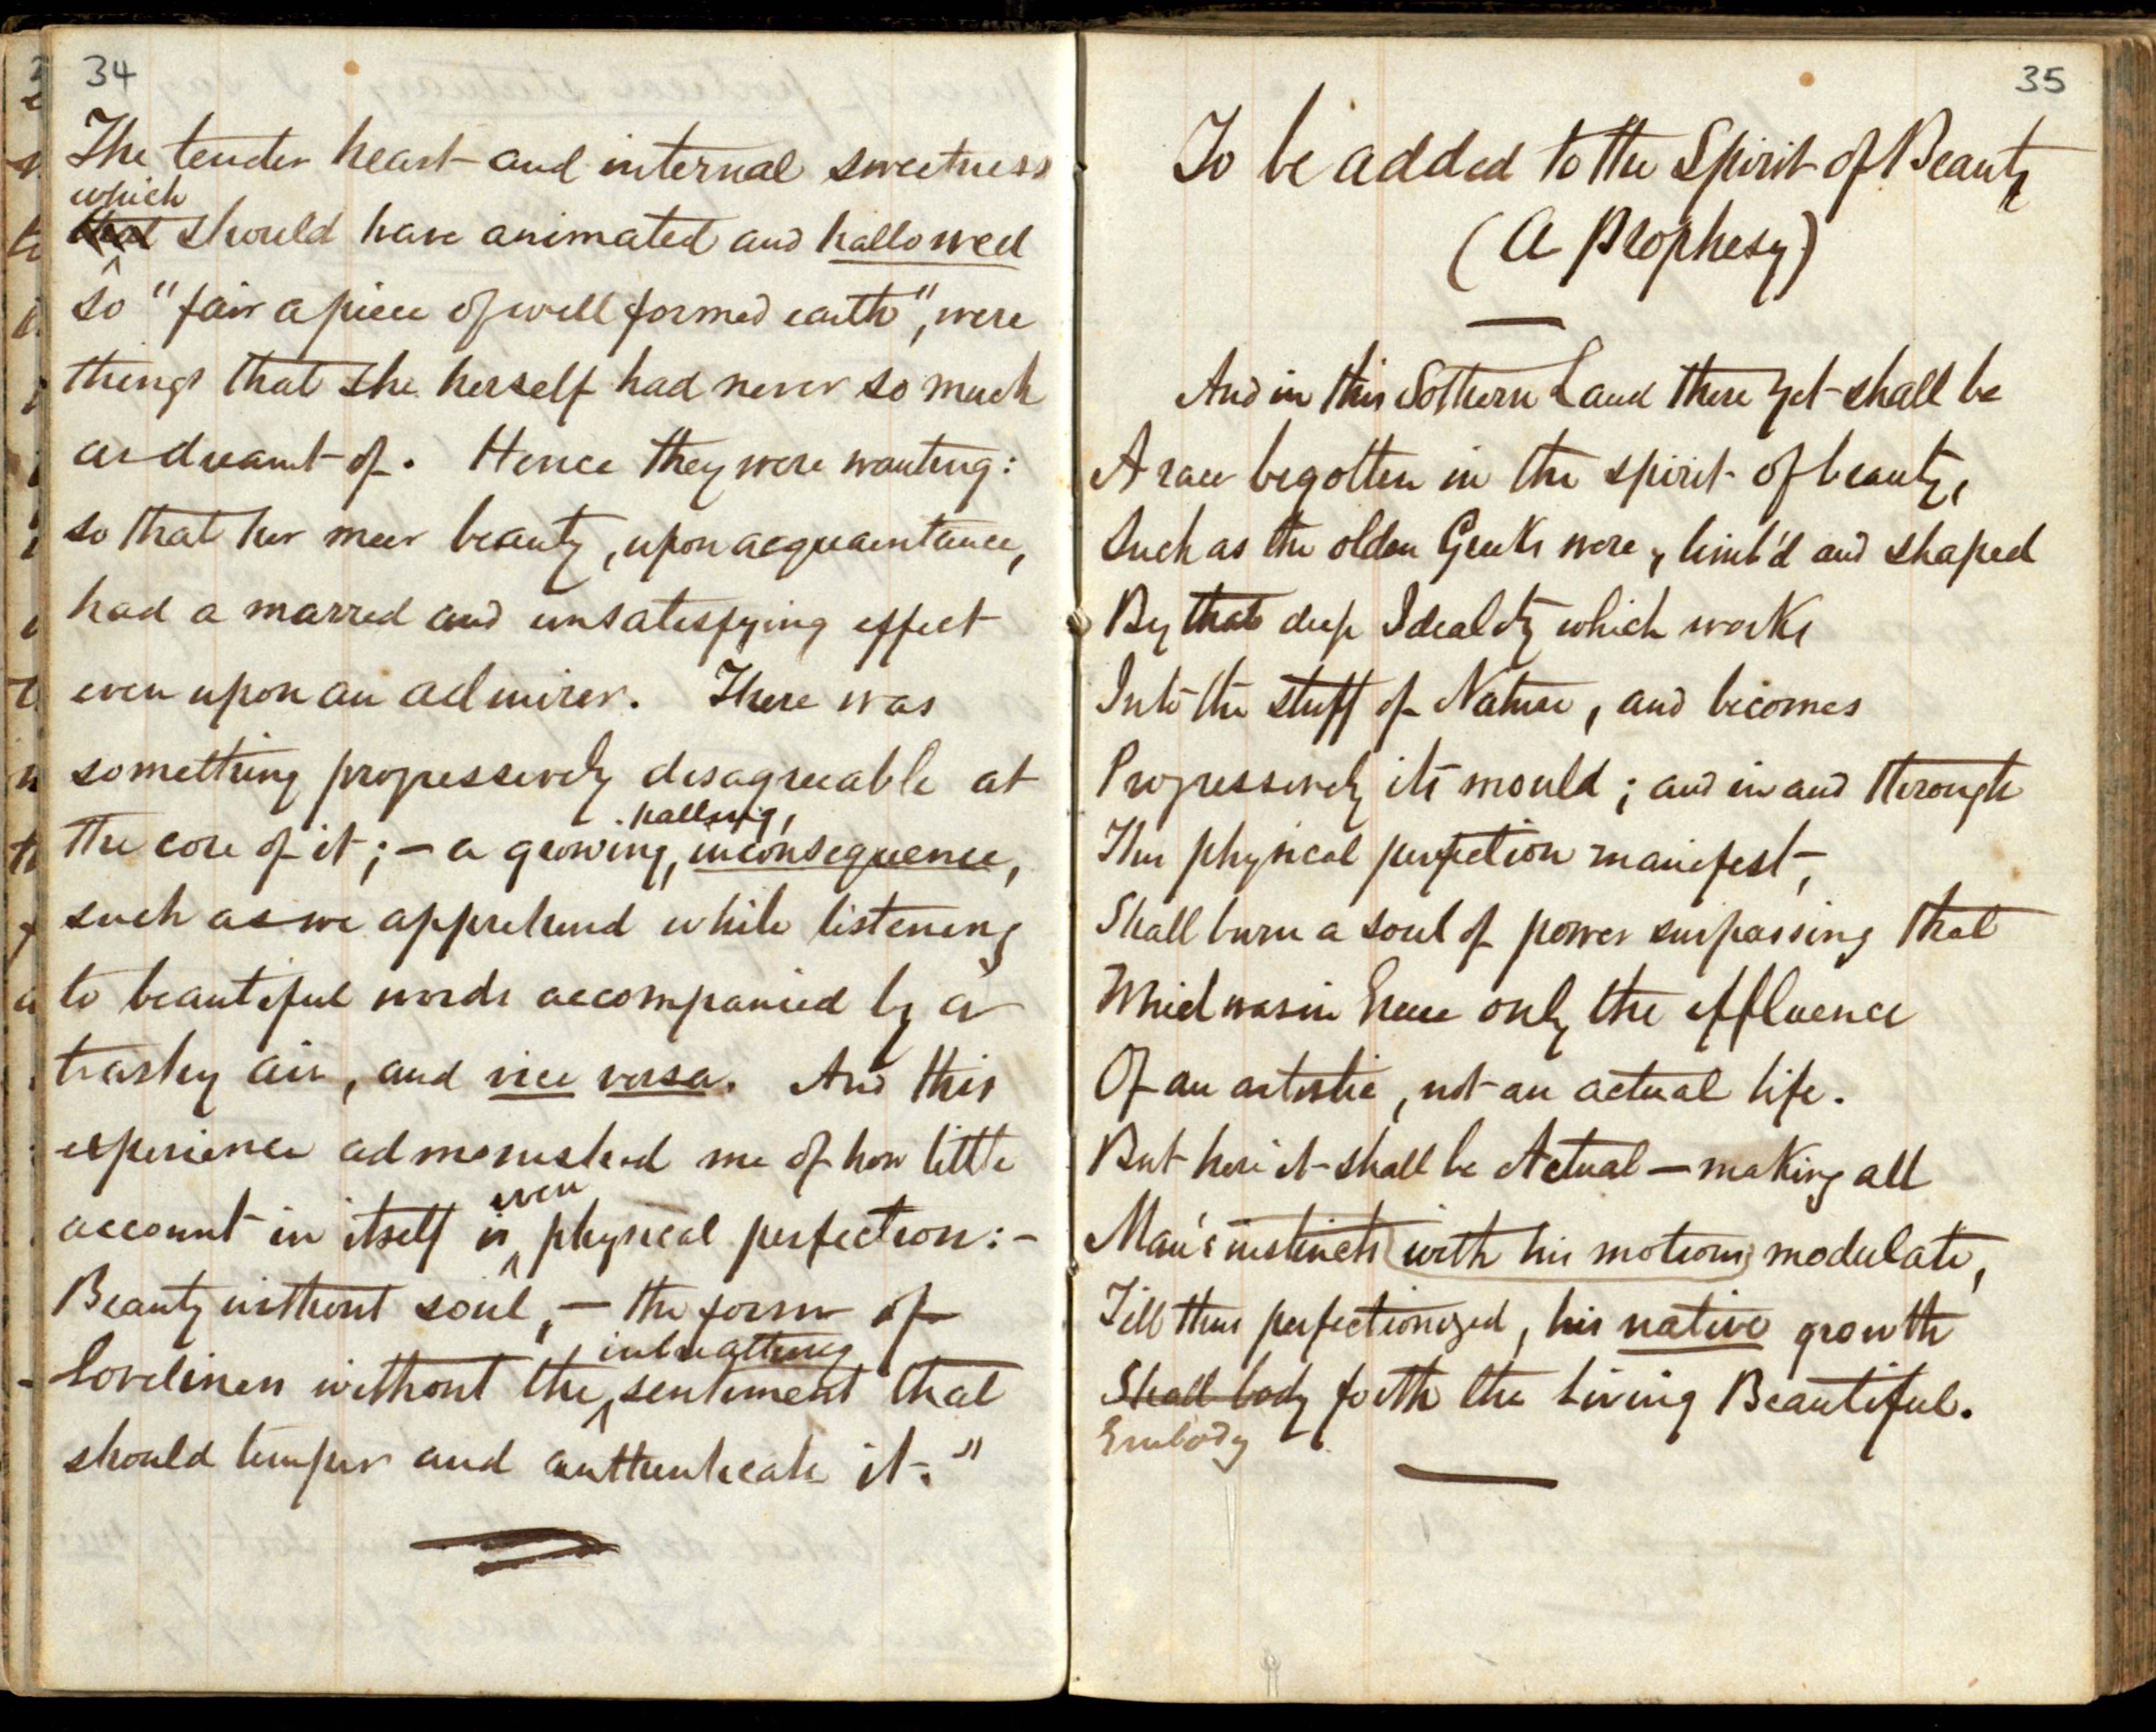 34
The tender heart and internal sweetness
which
that should have animated and hallowed
so "fair a piece of well formed earth", were
things that she herself had never so much
as dreamt of. Hence they were wanting:
so that her meer beauty, upon acquaintance,
had a marred and unsatisfying effect
even upon an admirer. There was
something progressively disagreeable at
palling,
the core of it; – a growing, inconsequence,
such as we apprehend while listening
to beautiful words accompanied by a
trashy air, and vice versa. And this
experience admonished me of how little
even
account in itself is physical perfection: –
Beauty without soul, – the form of
inbreathing
loveliness without the sentiment that
should temper and authenticate it."
35
To be added to the Spirit of Beauty
(A Prophesy)
And in this Sothern Land there yet shall be
A race begotten in the spirit of beauty,
Such as the olden Greeks were, limb'd and shaped
By that deep Ideality which works
Into the stuff of Nature, and becomes
Progressively its mould; and in and through
This physical perfection manifest,
Shall burn a soul of power surpassing that
Which was in Greece only the effluence
Of an artistic, not an actual life.
But here it shall be Actual — making all
Man's instincts (with his motions) modulate,
Till thus perfectionized, his native growth
Shall body forth the Living Beautiful.
Embody